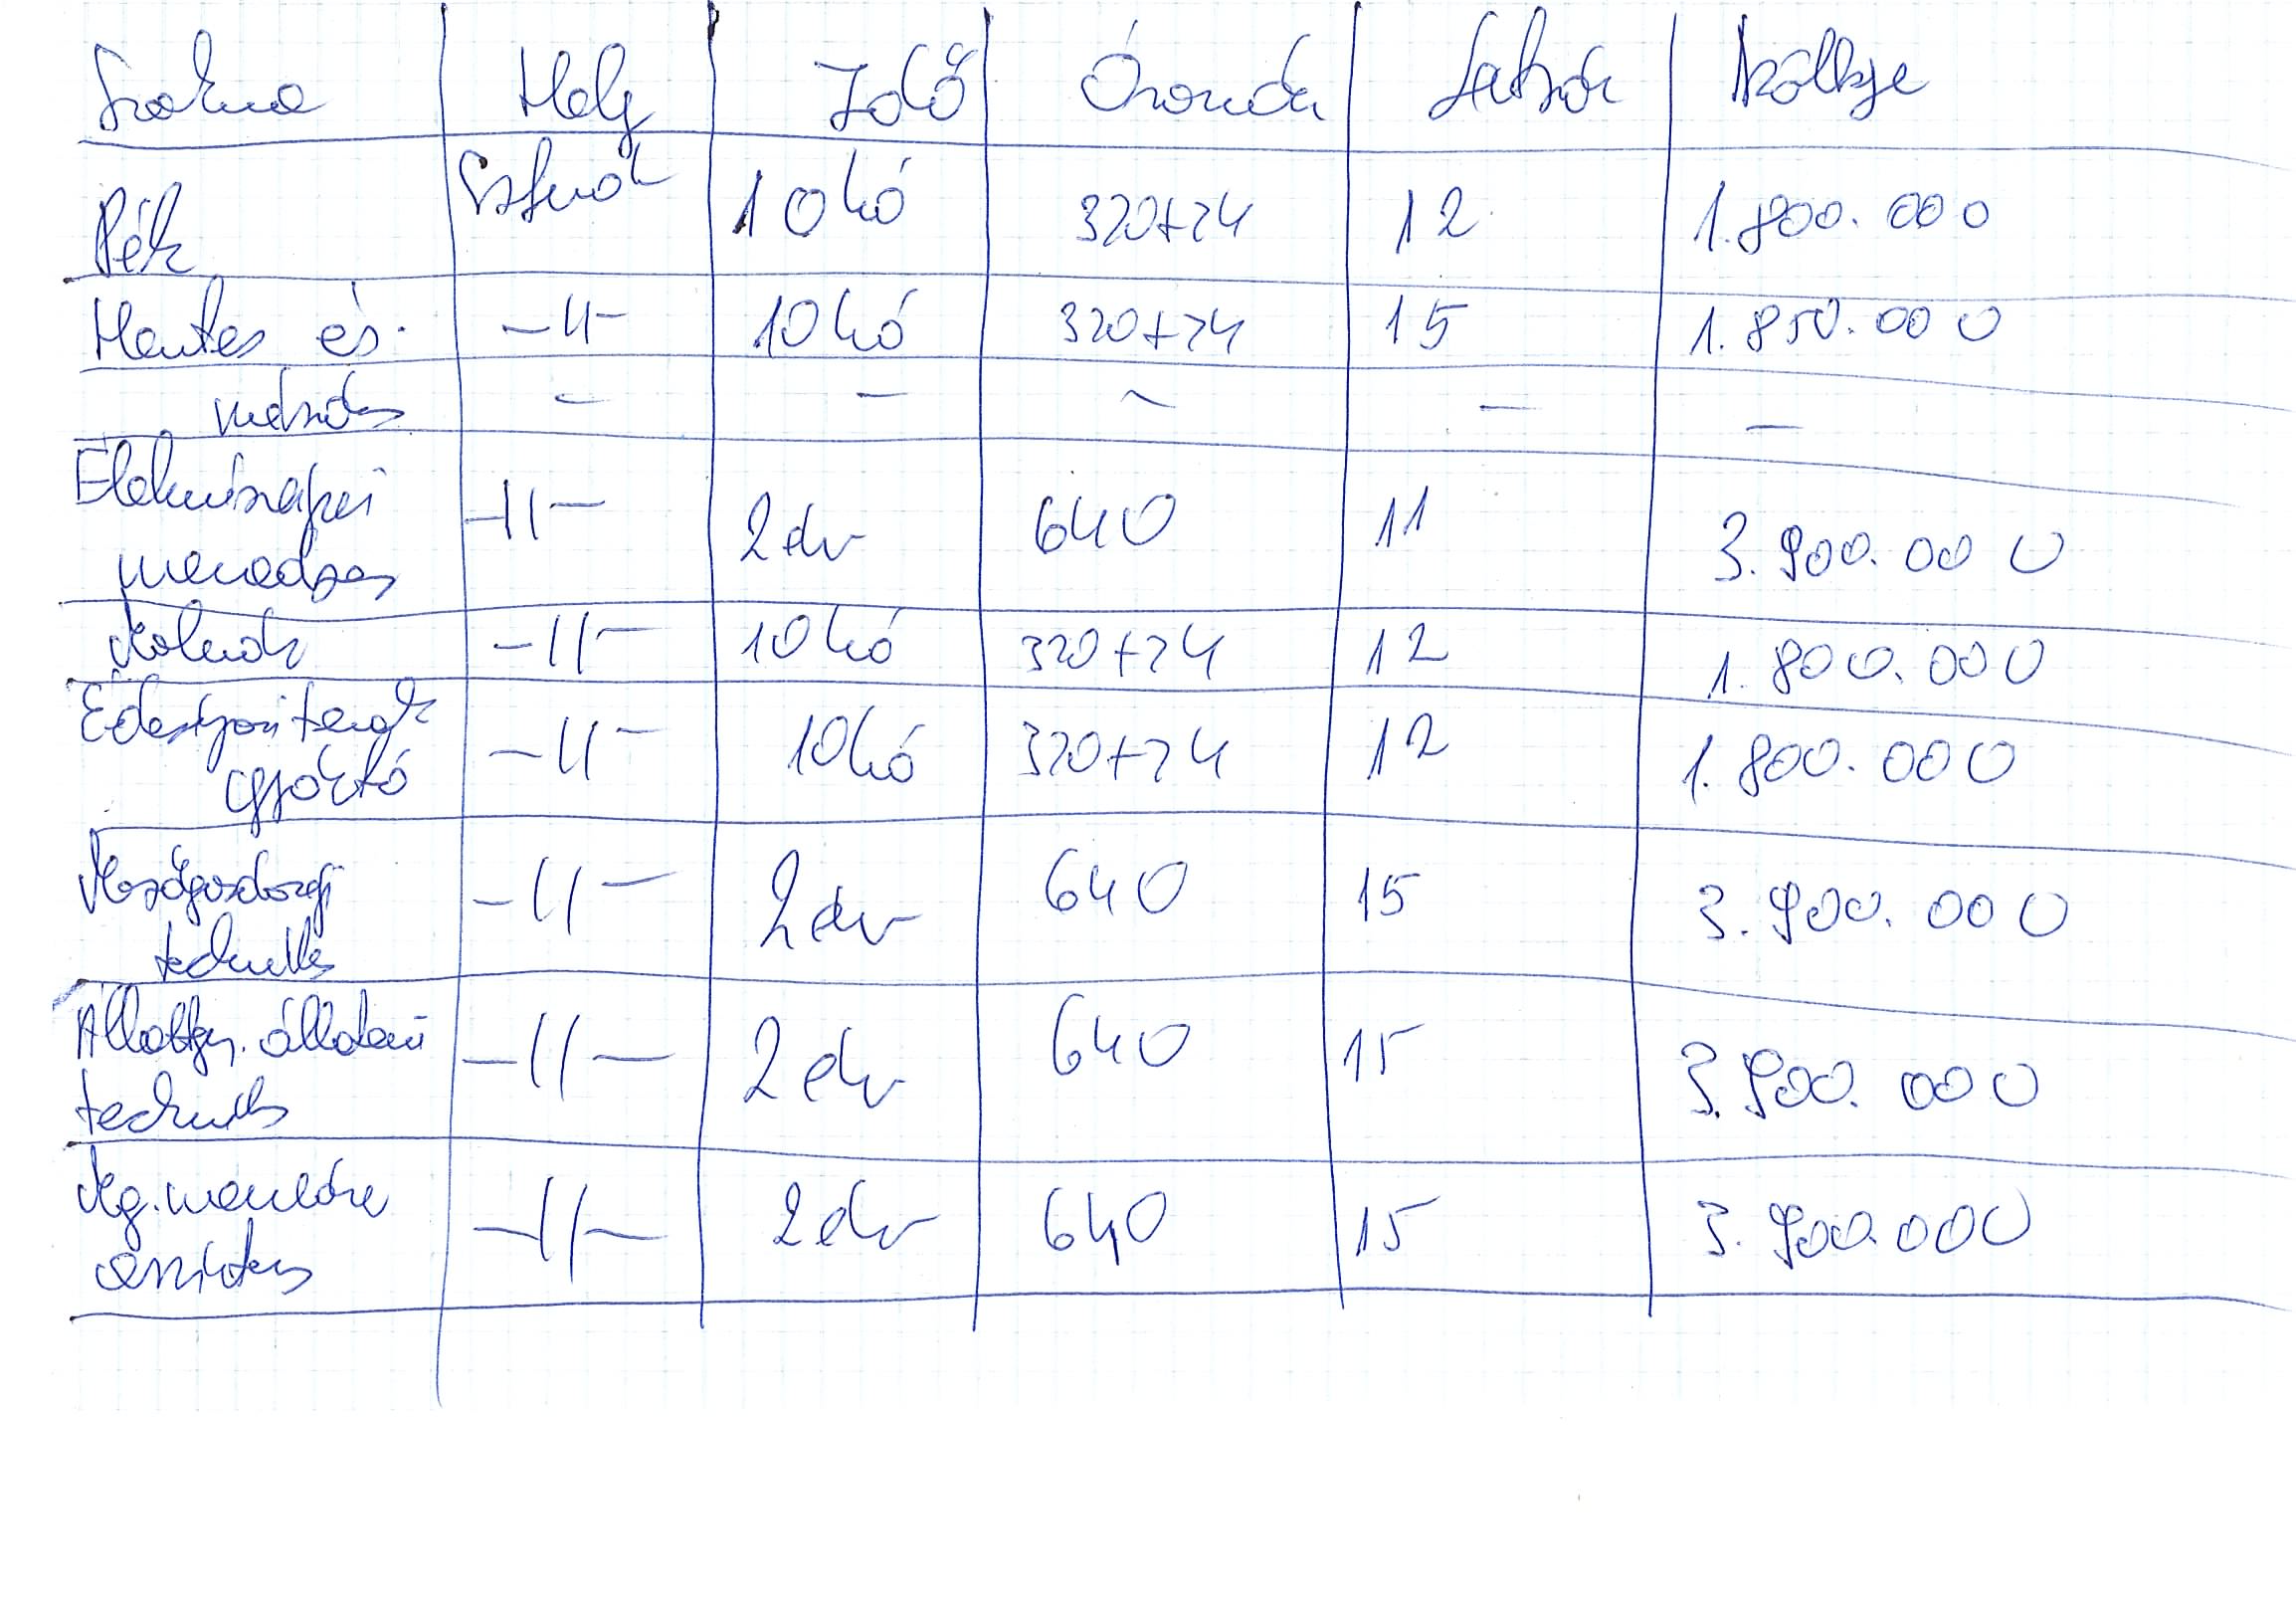 Szakma Hely Idő Óraszám Létszám Költsége
Pék 10 hó 320+24 12 1.800.000
Hentes és -11- 10 hó 320+24 15 1.850.000
- - - - -
Élelmiszeripari
menedzser -11- 2 év 640 11 3.900.000
Molnár -11- 10 hó 320+24 12 1.800.000
Édesipari termék
gyártó -11- 10 hó 320+24 12 1.800.000
Mezőgazdasági
technikus -11- 2 év 640 15 3.900.000
technikus -11- 2 év 640 15 3.900.000
Mg. mérnök
asszisztens -11- 2 év 640 15 3.900.000